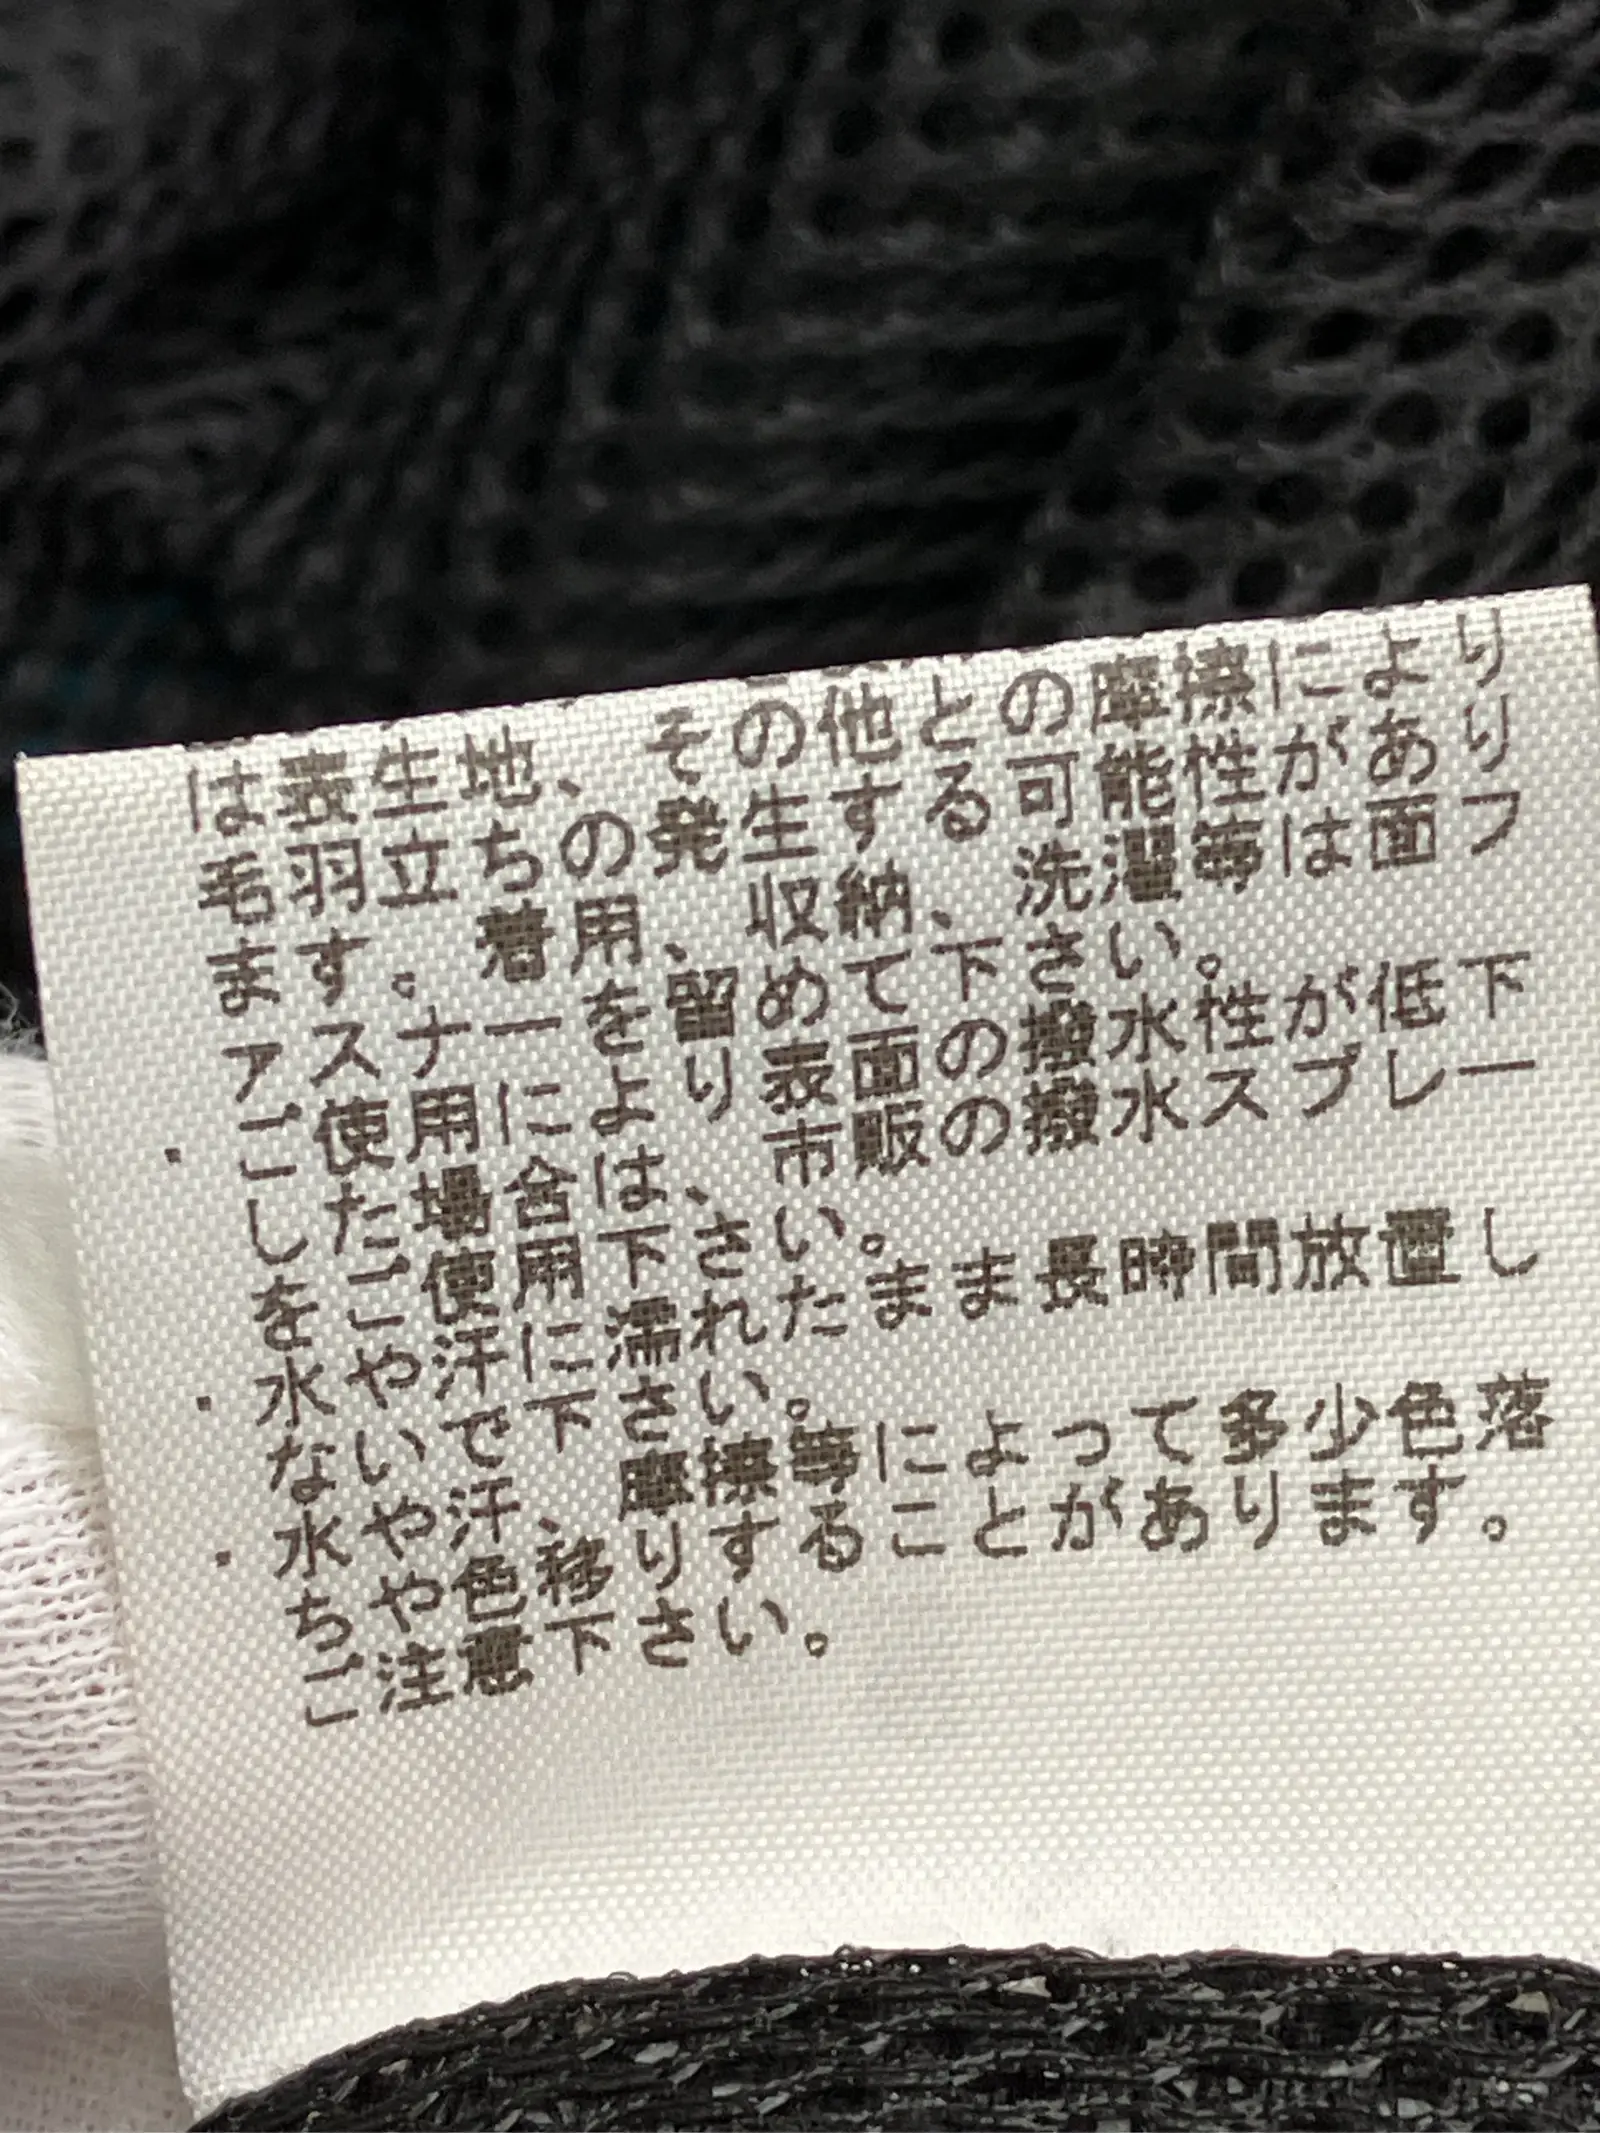 は表生地、その他との摩擦により
毛羽立ちの発生する可能性があり
ます。着用、収納、洗濯等は面フ
ァスナーを留めて下さい。
・ご使用により表面の撥水性が低下
した場合は、市販の撥水スプレー
をご使用下さい。
・水や汗に濡れたまま長時間放置し
ないで下さい。
・水や汗、摩擦等によって多少色落
ちや色移りすることがあります。
ご注意下さい。